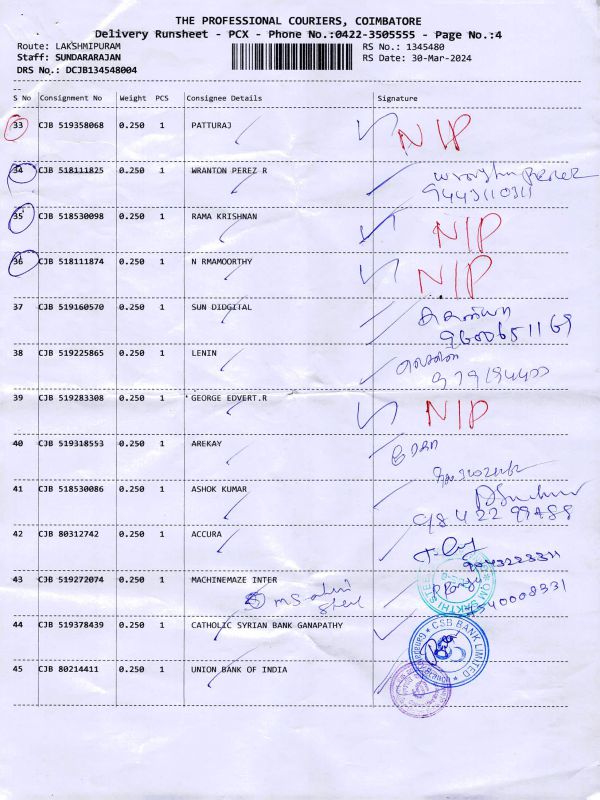 THE PROFESSIONAL COURIERS, COIMBATORE
Delivery Runsheet - PCX - Phone No.:0422-3505555 - Page No.:4
Route: LAKSHMIPURAM RS No.: 1345480
Staff: SUNDARARAJAN RS Date: 30-Mar-2024
DRS No.: DCJB134548004
S No Consignment No Weight PCS Consignee Details Signature
33 CJB 519358068 0.250 1 PATTURAJ NIP
34 CJB 518111825 0.250 1 WRANTON PEREZ R
9443110311
35 CJB 518530098 0.250 1 RAMA KRISHNAN NIP
36 CJB 518111874 0.250 1 N RMAMOORTHY NIP
37 CJB 519160570 0.250 1 SUN DIDGITAL
9600651169
38 CJB 519225865 0.250 1 LENIN
39 CJB 519283308 0.250 1 GEORGE EDVERT.R NIP
40 CJB 519318553 0.250 1 AREKAY
41 CJB 518530086 0.250 1 ASHOK KUMAR
42 CJB 80312742 0.250 1 ACCURA
9043223311
43 CJB 519272074 0.250 1 MACHINEMAZE INTER
44 CJB 519378439 0.250 1 CATHOLIC SYRIAN BANK GANAPATHY
CSB BANK LIMITED
45 CJB 80214411 0.250 1 UNION BANK OF INDIA